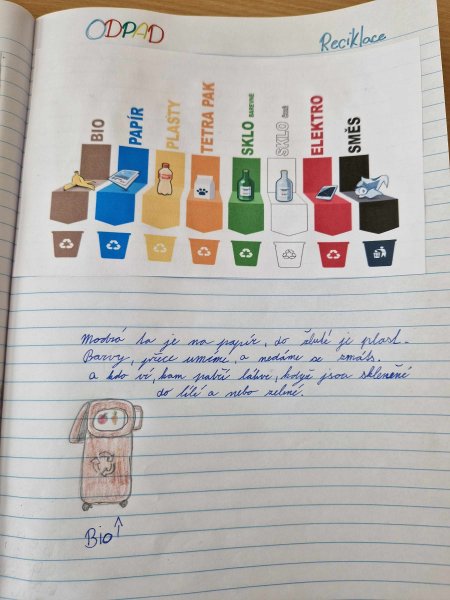 ODPAD
Reciklace
BIO
PAPÍR
PLASTY
TETRA PAK
SKLO BAREVNÉ
SKLO ČIRÉ
ELEKTRO
SMĚS
Modrá ta je na papír, do žluté jé plast.
Barvy, přece umíme, a nedáme se zmást.
a kdo ví, kam patří láhve, když jsou skleněné
do bílé a nebo zelené.
Bio